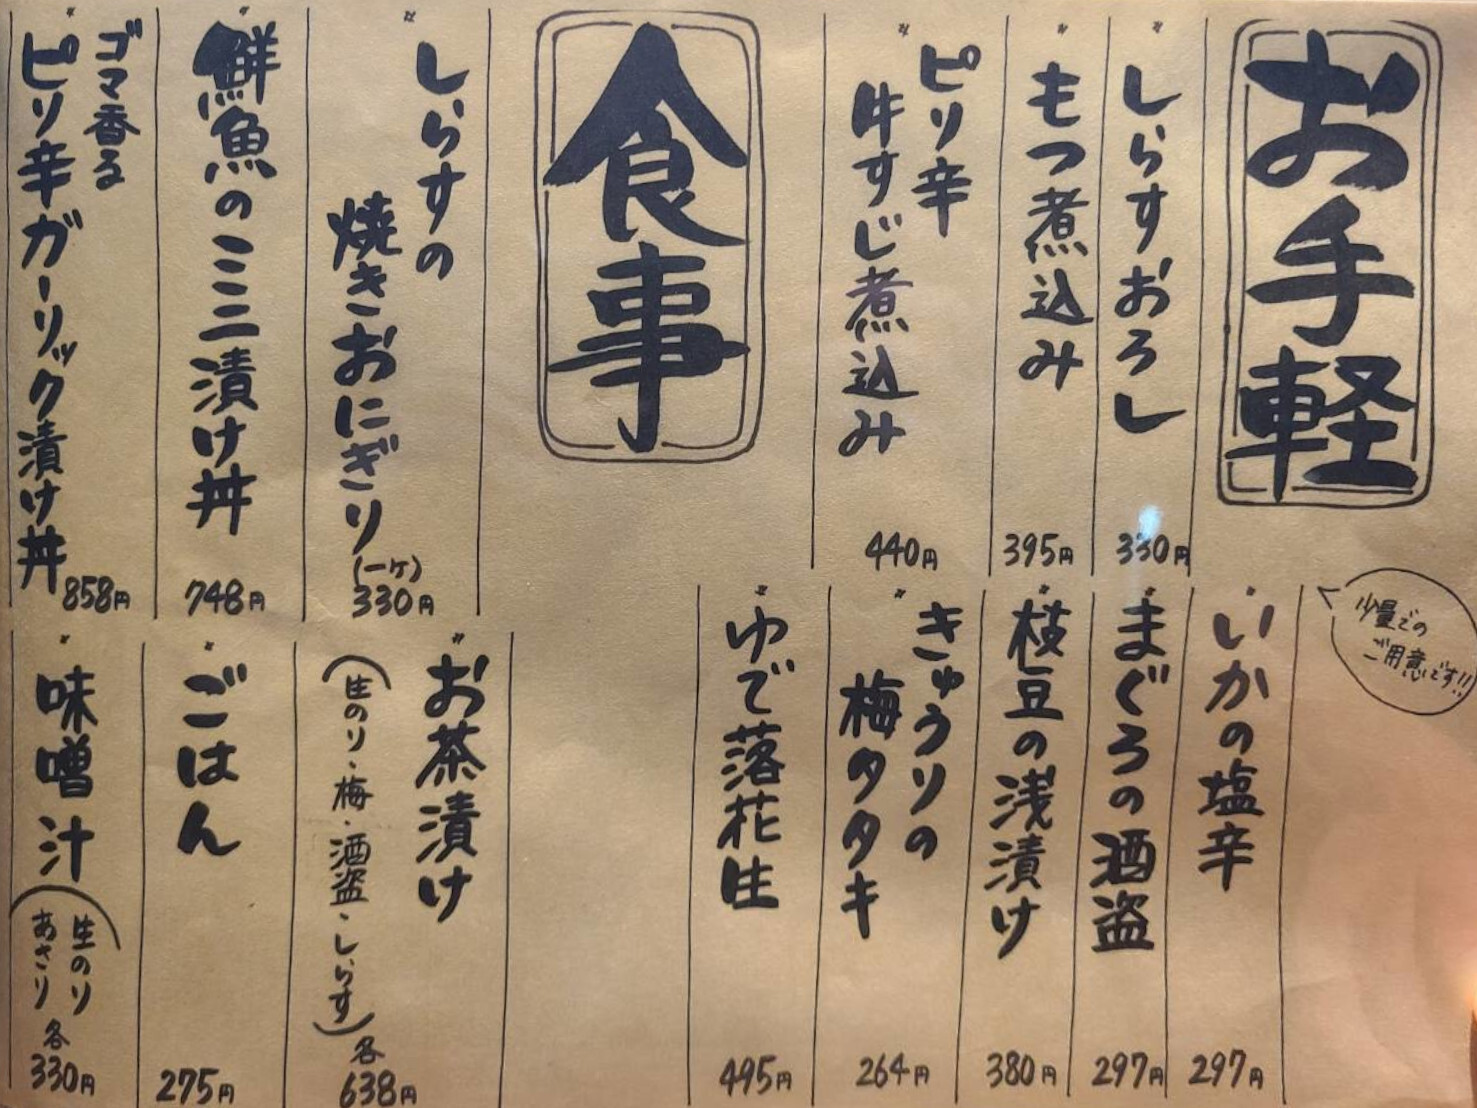 お手軽
しらすおろし
330円
もつ煮込み
395円
ピリ辛
牛すじ煮込み
440円
少量での
ご用意です!!
いかの塩辛
297円
まぐろの酒盗
297円
枝豆の浅漬け
380円
きゅうりの
梅タタキ
264円
ゆで落花生
495円
食事
しらすの
焼きおにぎり
(一ケ)
330円
鮮魚のミニ漬け丼
748円
ゴマ香る
ピリ辛ガーリック漬け丼
858円
お茶漬け
(生のり・梅・酒盗・しらす)
各
638円
ごはん
275円
味噌汁
(生のり
あさり)
各
330円